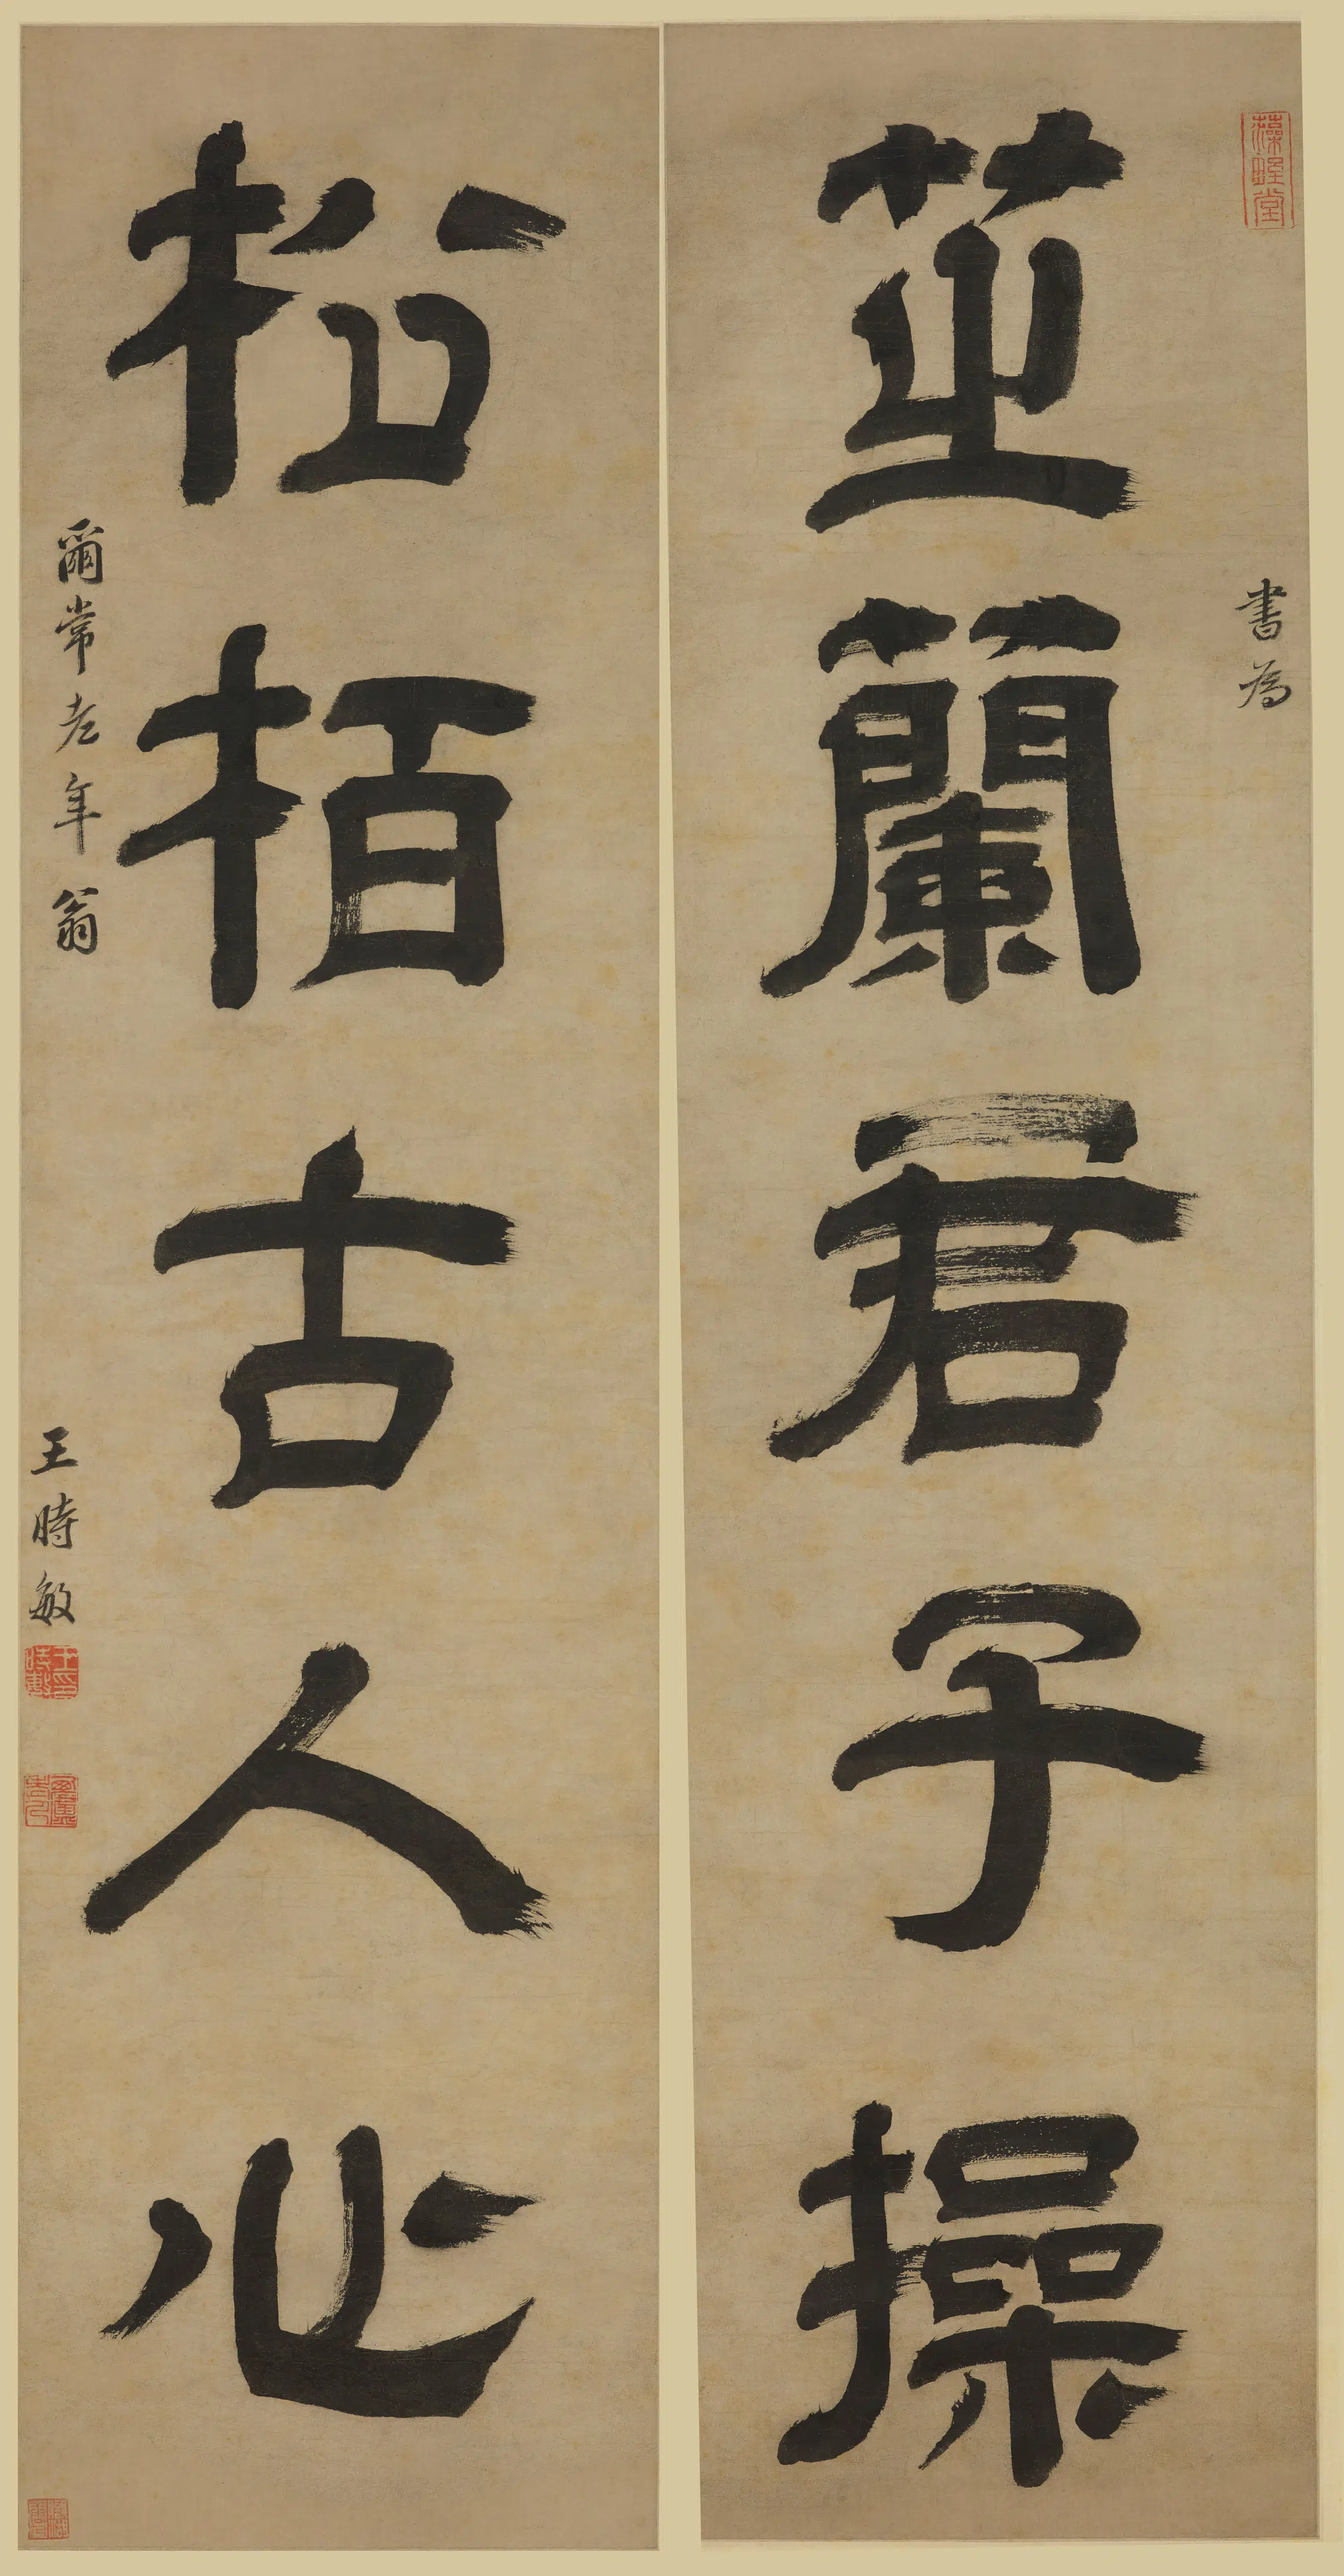 芷蘭君子操
書為
松栢古人心
爾常老年翁
王時敏